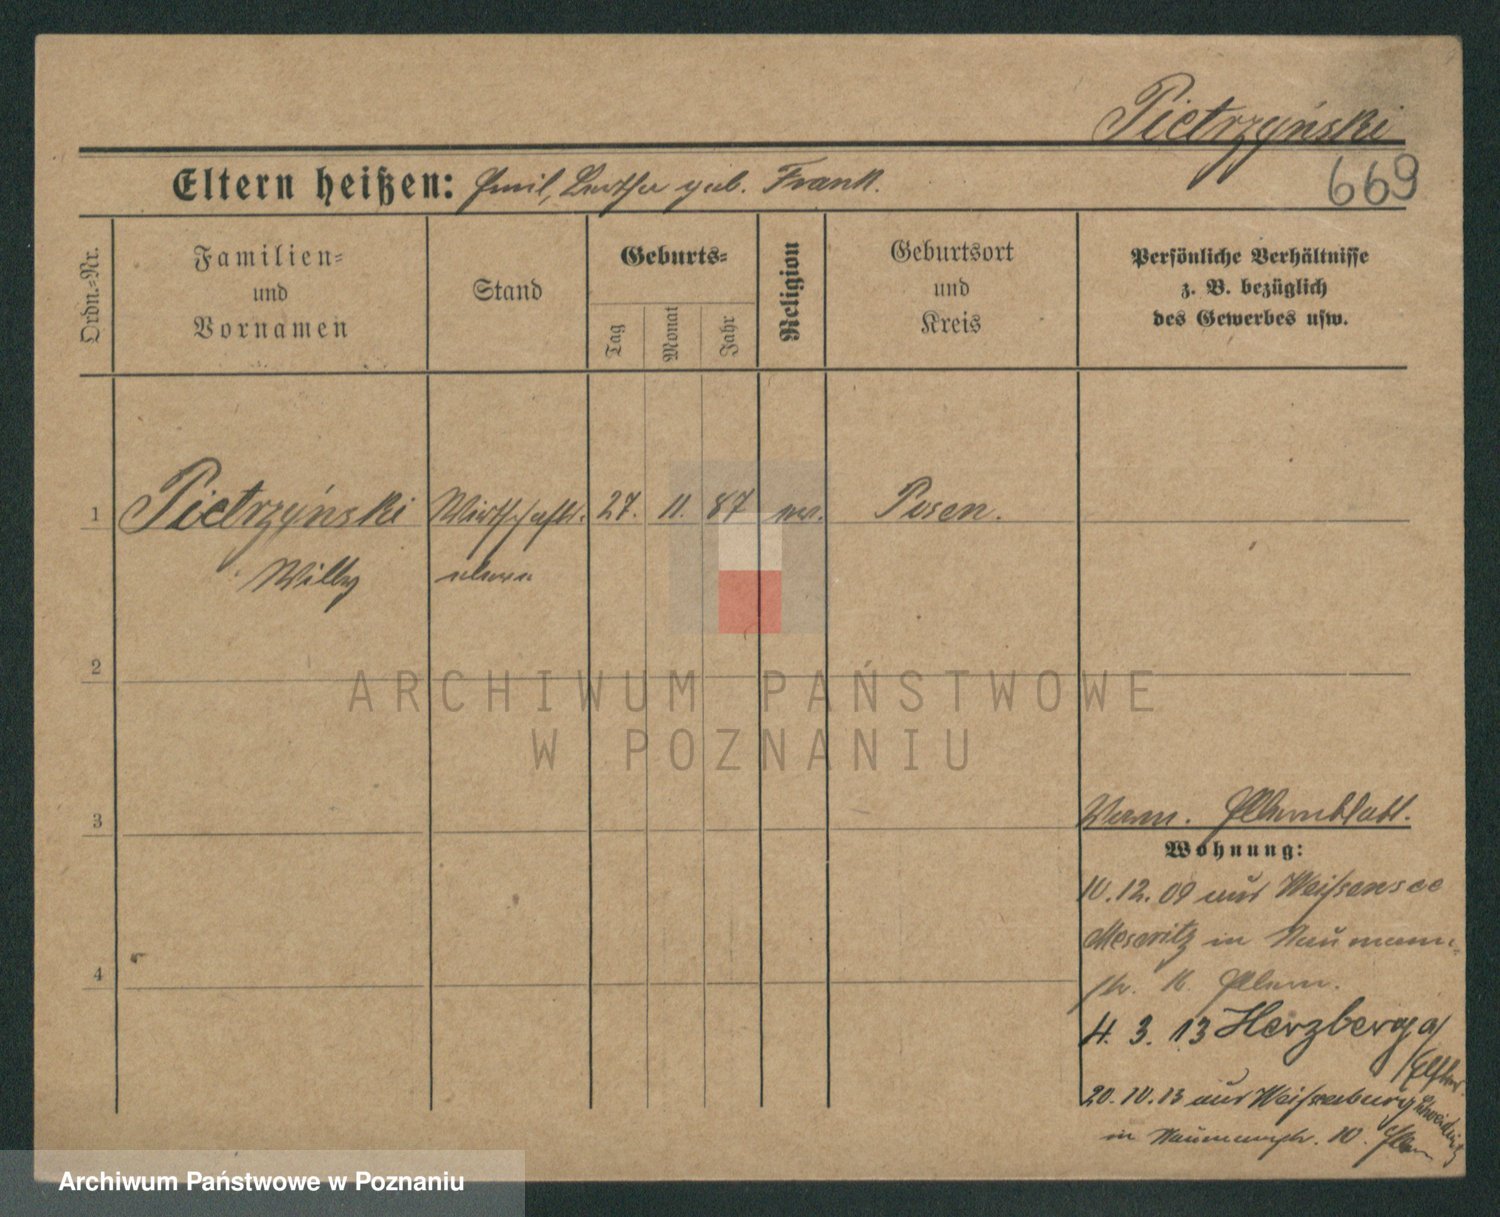 Pietrzyński
669
Eltern heißen: Emil, Bertha geb. Frank.
Ordn.-Nr.
Familien-
und
Vornamen
Stand
Geburts-
Tag
Monat
Jahr
Religion
Geburtsort
und
Kreis
Persönliche Verhältnisse
z. B. bezüglich
des Gewerbes usw.
1
Pietrzyński
Willy
Wirtschafts-
eleve
27. 11. 87
ev.
Posen.
2
ARCHIWUM PAŃSTWOWE
W POZNANIU
3
Elternblatt.
Wohnung:
10.12.09 aus Weißensee
Meseritz in Naumann-
str. 10. Eltern.
4
4. 3. 13 Herzberg a/
Elster.
20.10.13 aus Weißenburg
Schweidnitz
in Naumannstr. 10. Eltern
Archiwum Państwowe w Poznaniu